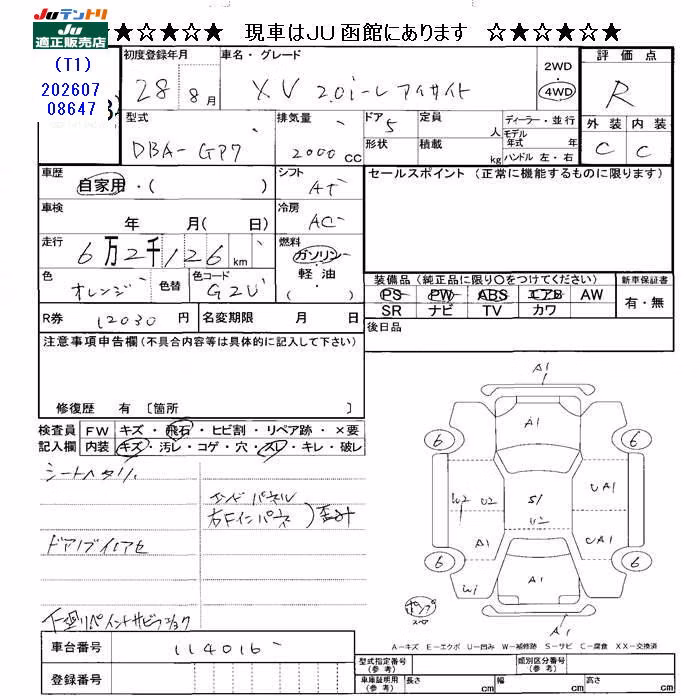 Juテントリ
JU
適正販売店
★☆★☆★ 現車はJU函館にあります ☆★☆★☆★
(T1)
202607
08647
初度登録年月
28 8 月
車名・グレード
XV 2.0i-L アイサイト
2WD
4WD
評価点
R
外装 内装
C C
型式
DBA-GP7
排気量
2000 CC
ドア 5
形状
定員 人
積載 kg
ディーラー・並行
モデル
年式 年
ハンドル 左・右
車歴
自家用・( )
シフト
AT
セールスポイント(正常に機能するものに限ります)
車検
年 月( 日)
冷房
AC
走行
6万2千126 km
燃料
ガソリン
軽油
( )
色
オレンジ
色替
色コード
G2U
装備品(純正品に限り○をつけてください)
PS PW ABS エアB AW
SR ナビ TV カワ
新車保証書
有・無
R券 12030 円
名変期限 月 日
後日品
注意事項申告欄(不具合内容等は具体的に記入して下さい)
修復歴 有〔箇所 〕
検査員
記入欄
FW キズ・飛石・ヒビ割・リペア跡・×要
内装 キズ・汚レ・コゲ・穴・スレ・キレ・破レ
シートヘタリ
エンドパネル
右Fインパネ
歪み
ドアノブイロアセ
下廻リペイントサビ
A1
A1
6 6
W2 U2
S1
U2
UA1
A1
UA1
6 6
A1
W1
A1
A-キズ E-エクボ U-凹み W-補修跡 S-サビ C-腐食 XX-交換済
車台番号 114016
登録番号
型式指定番号
(参考)
類別区分番号
(参考)
車庫証明用
(参考)
長さ cm
幅 cm
高さ cm